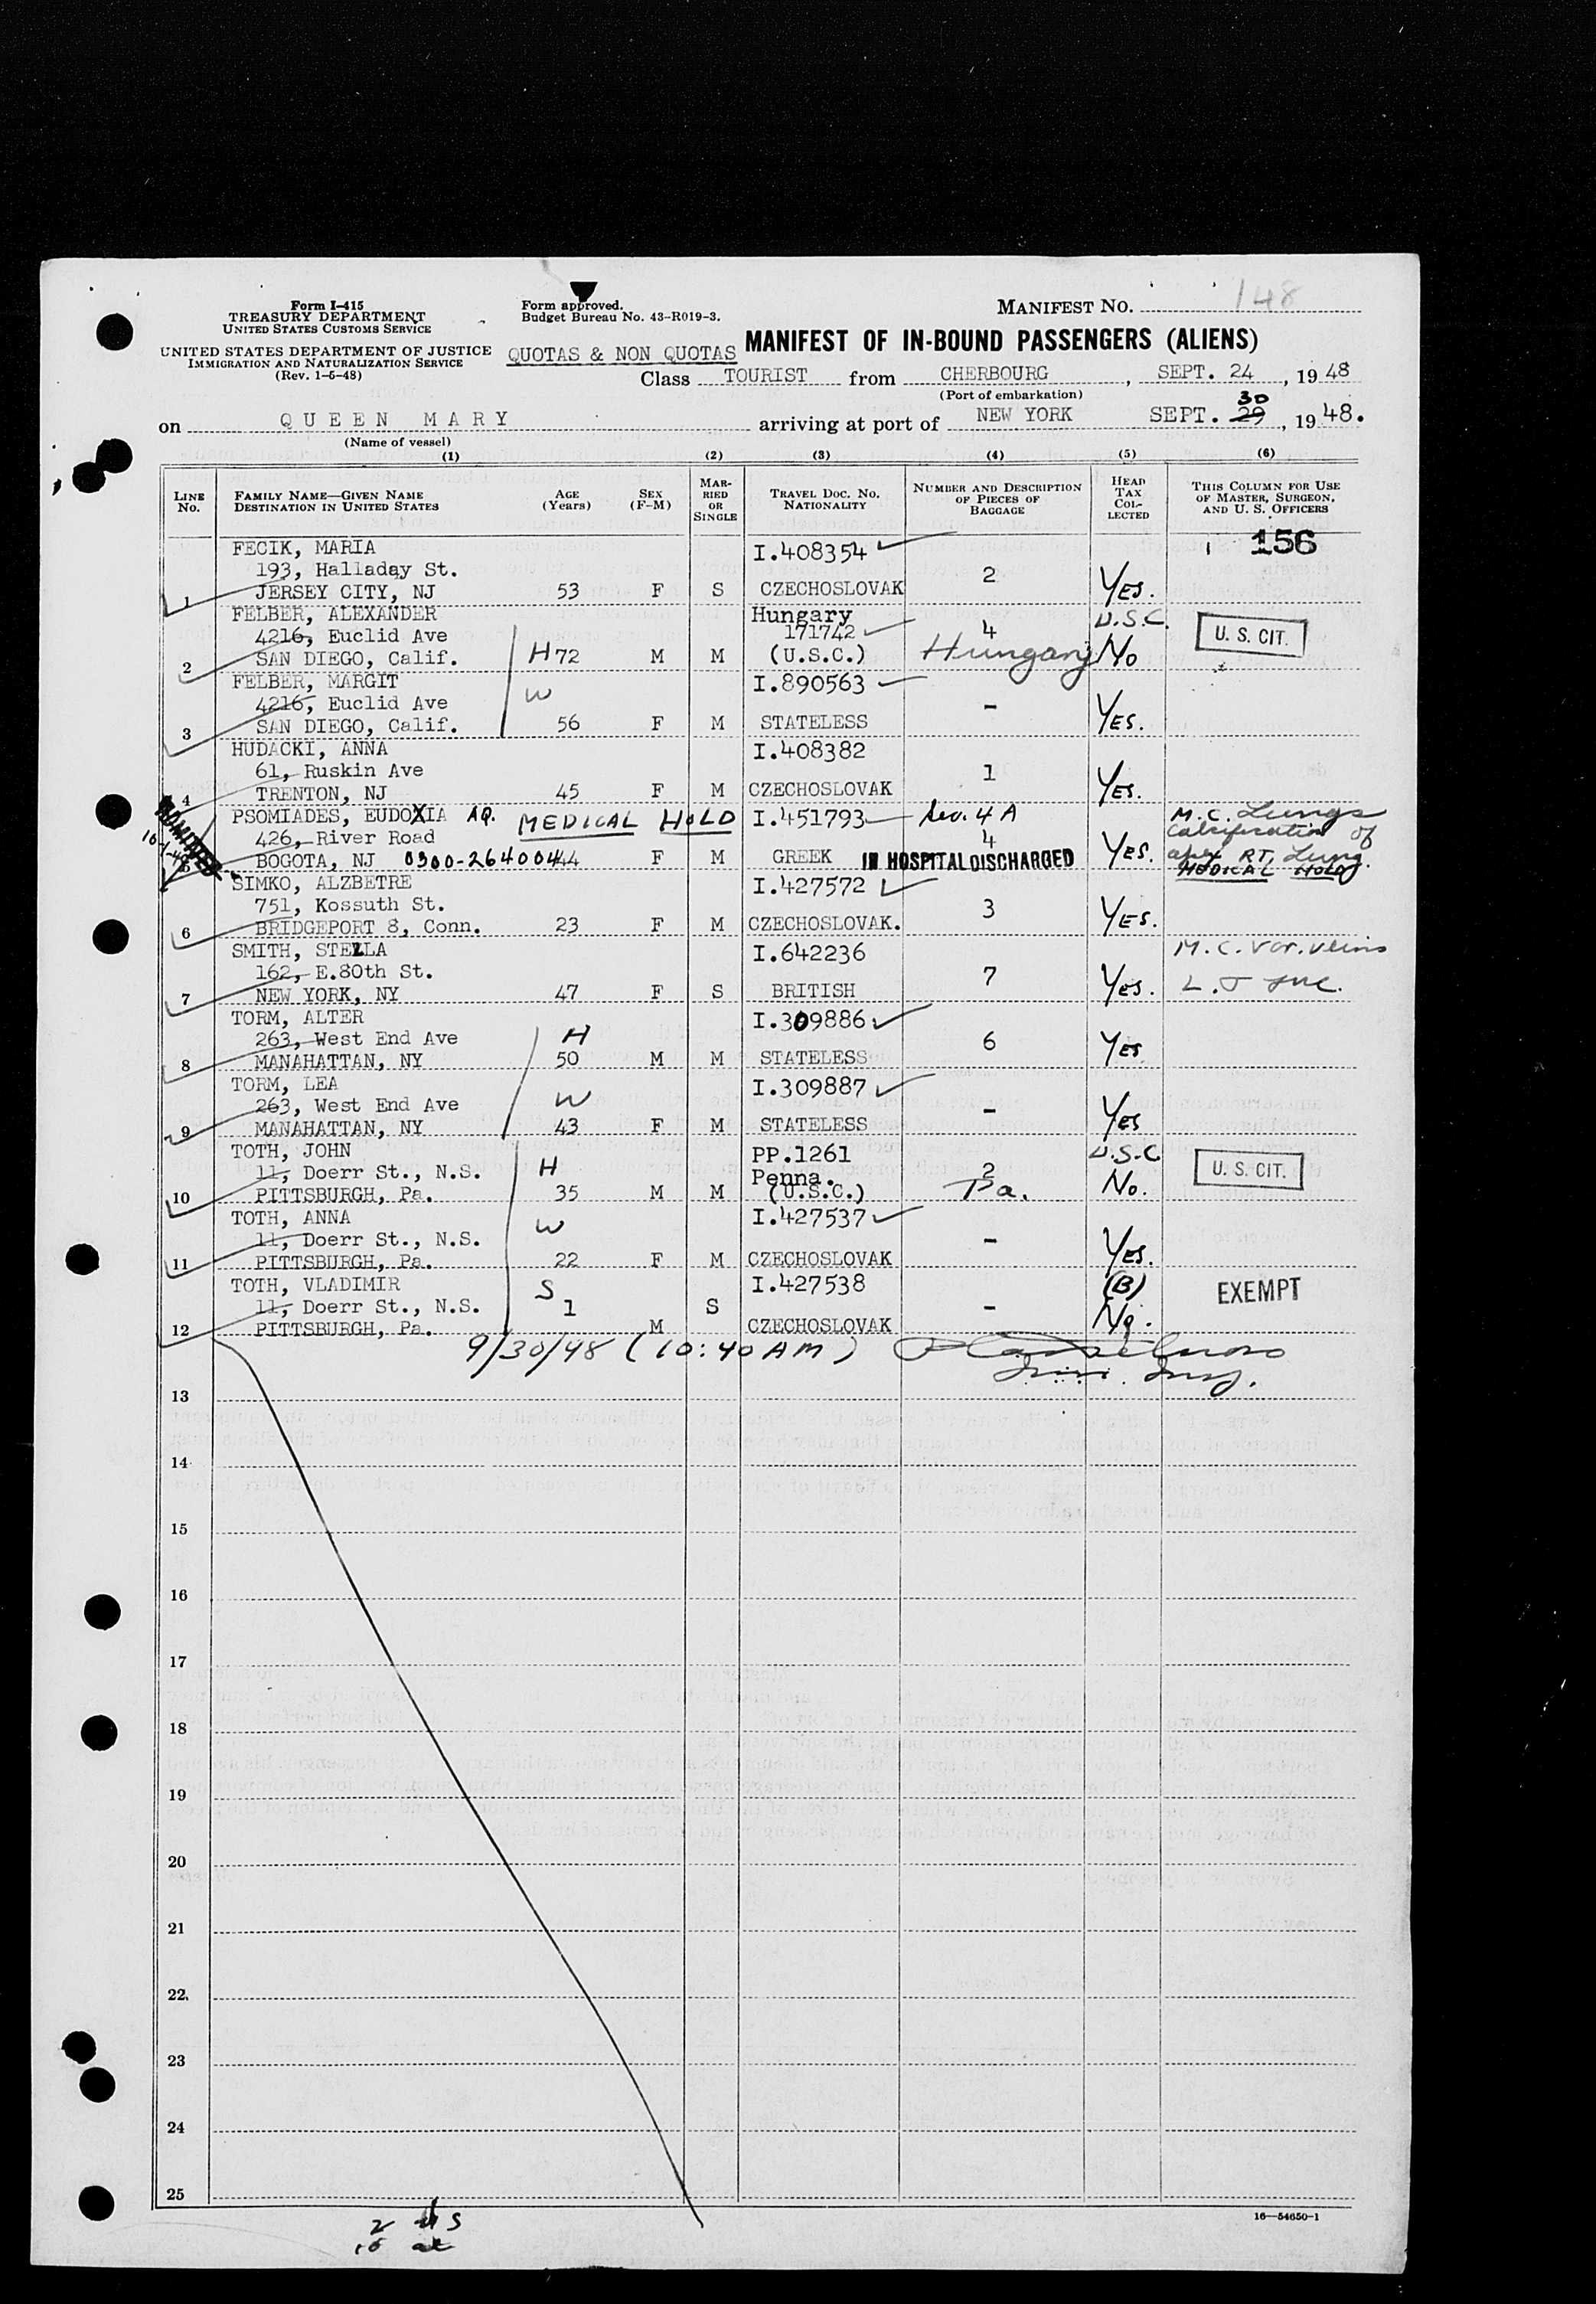 Form I-415
TREASURY DEPARTMENT
UNITED STATES CUSTOMS SERVICE
UNITED STATES DEPARTMENT OF JUSTICE
IMMIGRATION AND NATURALIZATION SERVICE
(Rev. 1-5-48)
Form approved.
Budget Bureau No. 43-R019-3.
MANIFEST NO. 148
QUOTAS & NON QUOTAS MANIFEST OF IN-BOUND PASSENGERS (ALIENS)
Class TOURIST from CHERBOURG, SEPT. 24, 1948
(Port of embarkation)
on QUEEN MARY arriving at port of NEW YORK SEPT. 29 30, 1948.
(Name of vessel)
(1) (2) (3) (4) (5) (6)
LINE NO.
FAMILY NAME—GIVEN NAME
DESTINATION IN UNITED STATES
AGE (Years)
SEX (F-M)
MARRIED OR SINGLE
TRAVEL DOC. NO. NATIONALITY
NUMBER AND DESCRIPTION OF PIECES OF BAGGAGE
HEAD TAX COLLECTED
THIS COLUMN FOR USE OF MASTER, SURGEON, AND U. S. OFFICERS
FECIK, MARIA I.408354 156
193, Halladay St. 2
1 JERSEY CITY, NJ 53 F S CZECHOSLOVAK YES.
FELBER, ALEXANDER Hungary U.S.C.
4216, Euclid Ave 171742 4 U. S. CIT.
2 SAN DIEGO, Calif. H 72 M M (U.S.C.) Hungary No
FELBER, MARGIT W I.890563
4216, Euclid Ave -
3 SAN DIEGO, Calif. 56 F M STATELESS YES.
HUDACKI, ANNA I.408382
61, Ruskin Ave 1
4 TRENTON, NJ 45 F M CZECHOSLOVAK YES.
ADMITTED
PSOMIADES, EUDOXIA AQ. MEDICAL HOLD I.451793 Sec. 4 A M.C. Lungs
426, River Road 4 Calcification of
5 BOGOTA, NJ 0300-264004 44 F M GREEK IN HOSPITAL DISCHARGED YES. apex RT. Lung.
MEDICAL HOLD
SIMKO, ALZBETRE I.427572
751, Kossuth St. 3
6 BRIDGEPORT 8, Conn. 23 F M CZECHOSLOVAK. YES.
SMITH, STELLA I.642236 M.C. Var. Veins
162, E.80th St. 7
7 NEW YORK, NY 47 F S BRITISH YES.
TORM, ALTER I.309886
263, West End Ave H 6
8 MANAHATTAN, NY 50 M M STATELESS YES
TORM, LEA I.309887
263, West End Ave W -
9 MANAHATTAN, NY 43 F M STATELESS YES
TOTH, JOHN PP.1261 U.S.C
11, Doerr St., N.S. H Penna. 2 U. S. CIT.
10 PITTSBURGH, Pa. 35 M M (U.S.C.) Pa. No.
TOTH, ANNA W I.427537
11, Doerr St., N.S. -
11 PITTSBURGH, Pa. 22 F M CZECHOSLOVAK YES.
TOTH, VLADIMIR S I.427538 (B) EXEMPT
11, Doerr St., N.S. 1 S -
12 PITTSBURGH, Pa. M CZECHOSLOVAK No.
9/30/48 (10:40 AM)
Imm. Insp.
13
14
15
16
17
18
19
20
21
22
23
24
25
16—54650-1
2 US